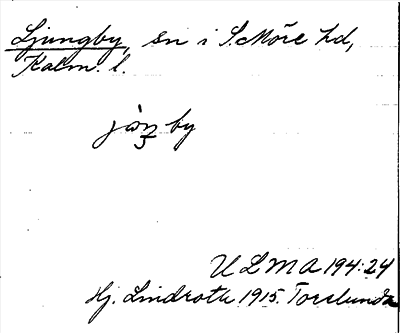 Ljungby, sn i S. Möre hd,
Kalm. l.
by
ULMA 194:24
Hj. Lindroth 1915. Torslunda